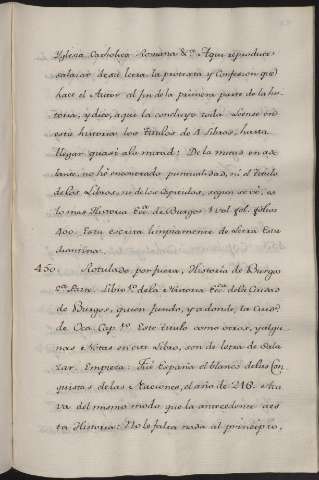 Yglesia Catholica Romana &ª. Aqui reproduce
salazar de su letra la protexta y Confesion que
hace el Autor al fin de la primera parte de la his-
toria, y dice, aqui la concluye toda. Leense en
esta historia los titulos de 4 Libros, hasta
llegar quasi a la mitad: De la mitad en ade-
lante, no hé encontrado puntualidad, ni el titulo
de los Libros, ni de los Capitulos, segun se vé, es
lo mas Historia Ecc.ca de Burgos 1 vol. fol. folios
400. Esta escrita limpiamente de Letra Estu-
diantina.
450. Rotulado por fuera, Historia de Burgos
Libro 1º de la Historia Ecc.ca de la Ciudad
de Burgos, quien fundo, y adonde, la Ciud.d
de Oca Cap. 1º. Este titulo como otros, y algu-
nas Notas en este Libro, son de letra de Sala-
zar. Empieza: Fué España el blanco de las Con-
quistas de las Naciones, el año de 218.
va del mismo modo que la antecedente
ta Historia: No le falta nada al principio,